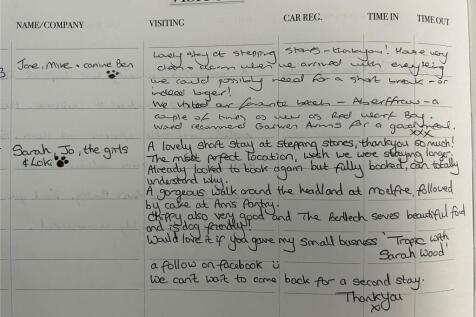 NAME/COMPANY VISITING CAR REG. TIME IN TIME OUT
Jane, Mike + canine Ben
Lovely stay at stepping stones - thankyou! House very
clean + warm when we arrived with everything
we could possibly need for a short break - or
indeed longer!
We visited our favourite beach - Aberffraw - a
couple of times as well as Red Wharf Bay.
Would recommend Garwen Arms for a good meal.
xxx
Sarah, Jo, the girls
& Loki
A lovely short stay at stepping stones, thankyou so much!
The most perfect location, wish we were staying longer.
Already looked to book again but fully booked, can totally
understand why.
A gorgeous walk around the headland at moelfre, followed
by cake at Ann's Pantry.
Chippy also very good and The Bertlech serves beautiful food
and is dog friendly!!
Would love it if you gave my small business 'Tropic with
Sarah Wood'
a follow on facebook
We can't wait to come back for a second stay.
Thankyou
x